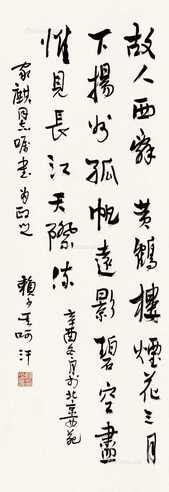 故人西辭黃鶴樓煙花三月
下揚州孤帆遠影碧空盡
惟見長江天際流
辛酉冬月於北京西苑
家麒囑書正之
賴少其呵汗